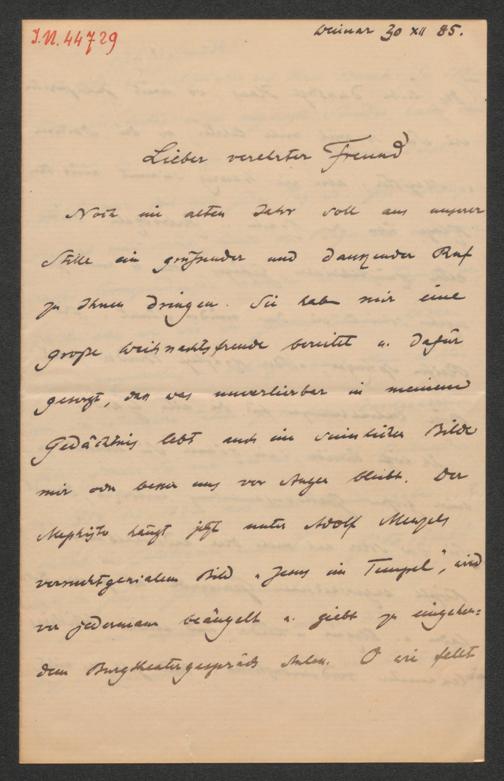 I.N. 44729
Weimar 30 XII 85.
Lieber verehrter Freund
Noch im alten Jahr soll aus unserer
Stille ein grüßender und dankender Ruf
zu Ihnen dringen. Sie haben mir eine
große Weihnachtsfreude bereitet u. dafür
gesorgt, daß was unverlierbar in meinem
Gedächtnis lebt auch im sinnlichen Bilde
mir oder besser uns vor Augen bleibt. Der
Mephisto hängt jetzt unter Adolf Menzels
genialem Bild „Jesus im Tempel", wird
von jedermann beäugelt u. giebt zu eingehen=
dem Burgtheatergespräch Anlass. O wie fehlt